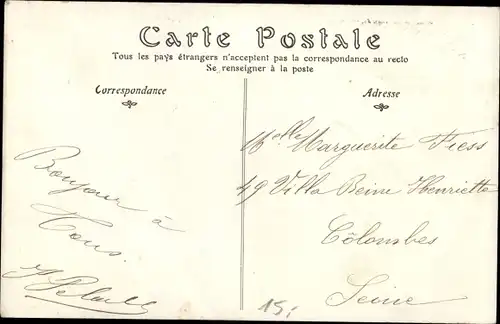 Carte Postale
Tous les pays étrangers n'acceptent pas la correspondance au recto
Se renseigner à la poste
Correspondance
Adresse
Bonjour à
Tous.
Melle Marguerite Fiess
49 Villa Reine Henriette
Côlombes
Seine
15,-